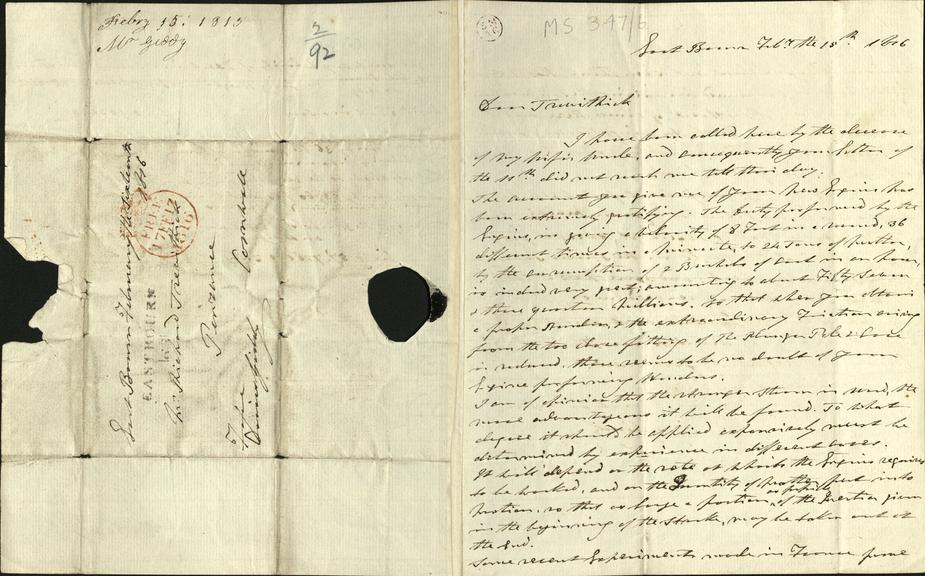 Febry 15: 1816
Mr Giddy
2/92
East Bourn February the fifteenth
1816
FREE
17 FE 17
1816
EASTBOURN
Mr Richard Trevithick
Penzance
Cornwall
Davies Giddy
MS 347/6
East Bourn Feby the 15th 1816
Dear Trevithick
I have been called here by the decease
of my wife's Uncle, and consequently your letter of
the 11th did not reach me till this day.
The account you give me of your New Engine has
been extremely gratifying. The Duty performed by the
Engine, in giving a velocity of 8 Foot in a second, 36
different times in a minute, to 24 Tons of matter,
by the consumption of 2 Bushels of Coal in an hour,
is indeed very great; amounting to about Fifty Seven
& three quarters Millions. So that when you obtain
a proper Burden, & the extraordinary Friction arising
from the too close fitting of the Plunger Pole & Case
is reduced, there seems to be no doubt of your
Engine performing Wonders.
I am of opinion that the stronger Steam is used, the
more advantageous it will be found. To what
degree it should be applied expansively must be
determined by experience in different cases.
It will depend on the rate at which the Engine requires
to be worked, and on the Quantity of matter put into
motion, so that as large a portion as possible of the Inertia given
in the beginning of the Stroke, may be taken out at
the End.
Some recent Experiments made in France prove